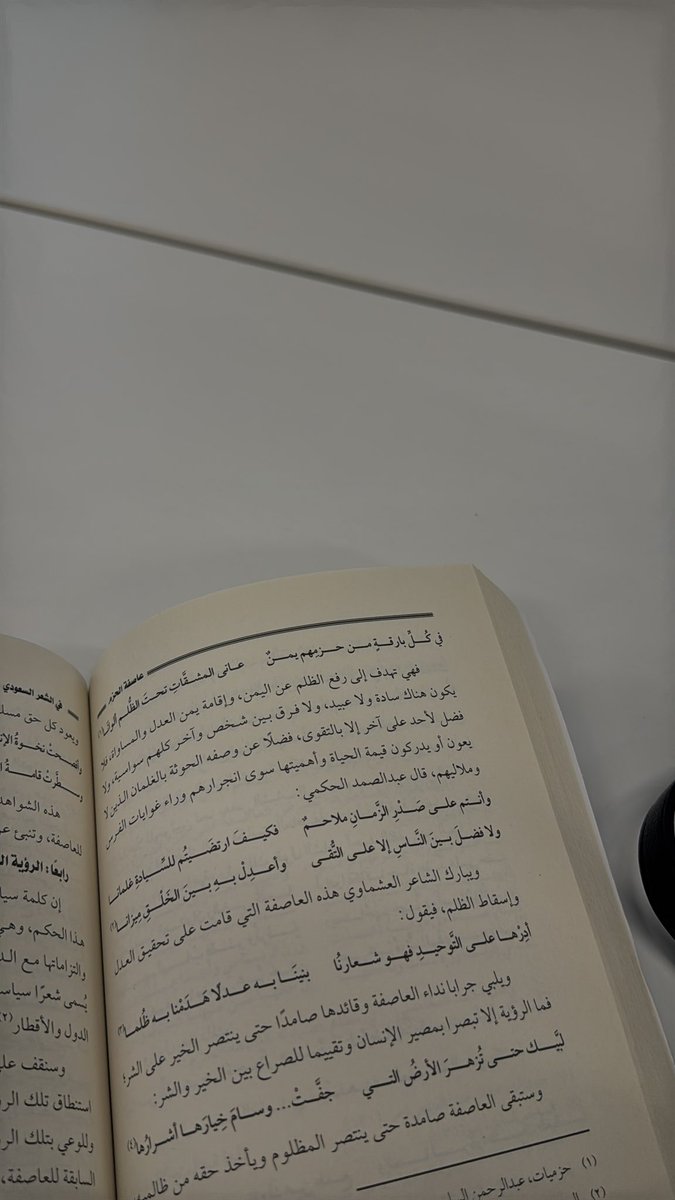 عاصفة الحزم
في كُلِّ بارقةٍ من حزمِهم يمنٌ عانى المشقَّاتِ تحتَ الظُّلمِ
فهي تهدف إلى رفع الظلم عن اليمن، وإقامة يمن العدل والمساواة، فلا
يكون هناك سادة ولا عبيد، ولا فرق بين شخص وآخر كلهم سواسية، ولا
فضل لأحد على آخر إلا بالتقوى، فضلًا عن وصفه الحوثة بالغلمان الذين لا
يعون أو يدركون قيمة الحياة وأهميتها سوى انجرارهم وراء غوايات الفرس
وملاليهم، قال عبدالصمد الحكمي:
وأنتم على صَدْرِ الزَّمانِ ملاحمٌ فكيفَ ارتضَيتُم للسِّيادةِ غلمانا
ولا فضلَ بينَ النَّاسِ إلا على التُّقَى وأعدِلْ بهِ بينَ الخَلْقِ ميزانا(٢)
ويبارك الشاعر العشماوي هذه العاصفة التي قامت على تحقيق العدل
وإسقاط الظلم، فيقول:
أدِرْها على التَّوحيدِ فهو شعارنُا بنينَا به عدلًا هَدَمْنا به ظُلما(٣)
ويلبي جرابا نداء العاصفة وقائدها صامدًا حتى ينتصر الخير على الشر؛
فما الرؤية إلا تبصرا بمصير الإنسان وتقييما للصراع بين الخير والشر:
لبَّيك حتى تُزهرَ الأرضُ التي جفَّتْ... وسامَ خِيارَها أشرارُها(٤)
وستبقى العاصفة صامدة حتى ينتصر المظلوم ويأخذ حقه من ظالميه
(١) حزميات، عبدالرحمن
(٢)
في الشعر السعودي
ويعود كل حق
وأضحتْ نخوةُ
هذه الشواهد
للعاصفة، وتنبئ
رابعًا: الرؤية
إن كلمة
هذا الحكم، وهي
والتزاماتها مع
يُسمى شعرًا
الدول والأقطار(٢)
وسنقف
استنطاق تلك
وللوعي بتلك
السابقة للعاصفة،